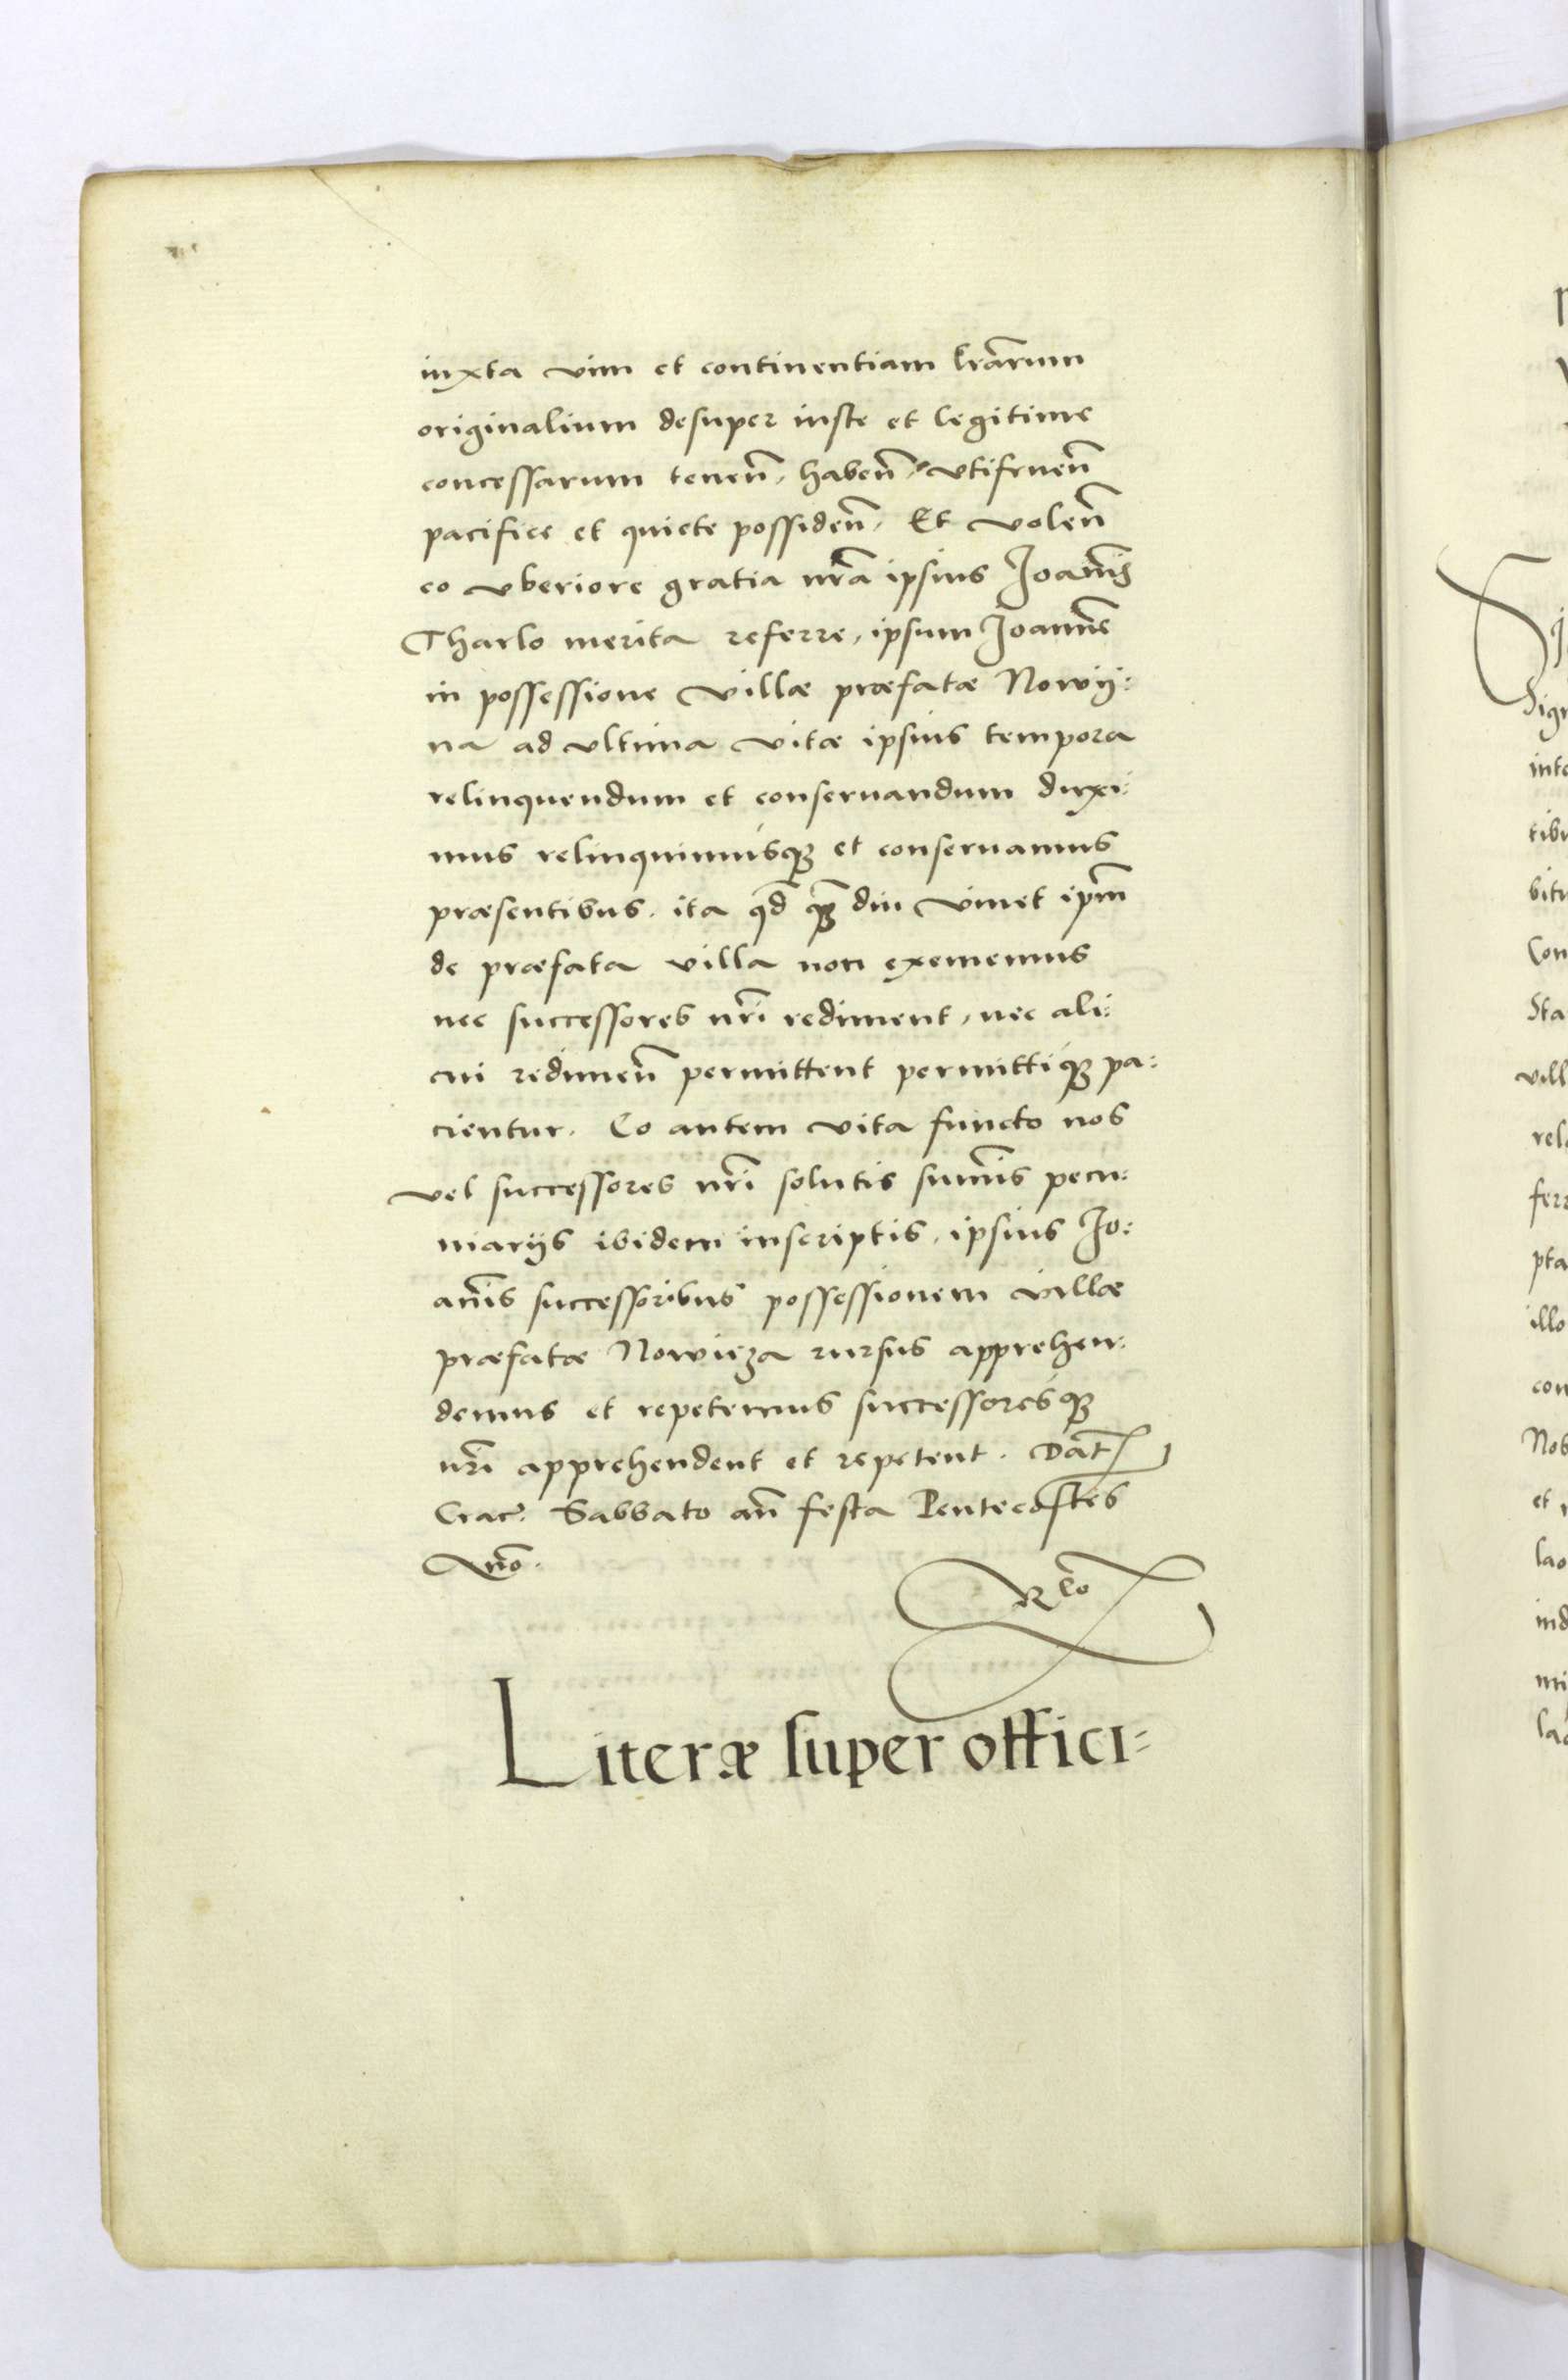 iuxta vim et continentiam lr̃arum
originalium desuper iuste et legitime
concessarum tenen̄, haben̄, vtifruen̄
pacifice et quiete possiden̄, Et volen̄
eo vberiore gratia nr̃a ipsius Joan̄is
Tharlo merita referre, ipsum Joannē
in possessione villæ præfatæ Nowij:
na ad vltima vitæ ipsius tempora
relinquendum et conseruandum duxi:
mus relinquimusqꝫ et conseruamus
præsentibus. ita qd̄ qꝫ̄ diu viuet ipm̄
de præfata villa non exememus
nec successores nr̃i rediment, nec ali:
cui redimen̄ permittent permittiqꝫ pa:
cientur. Eo autem vita functo nos
vel successores nr̃i solutis sum̄is pecu:
niarijs ibidem inscriptis, ipsius Jo:
an̄is successoribus possessionem villæ
præfatæ Nowiẹna rursus apprehen:
demus et repetemus successoresqꝫ
nr̃i apprehendent et repetent. Dat̄
Crac̄. Sabbato an̄ festa Pentecostes
Literæ super offici=